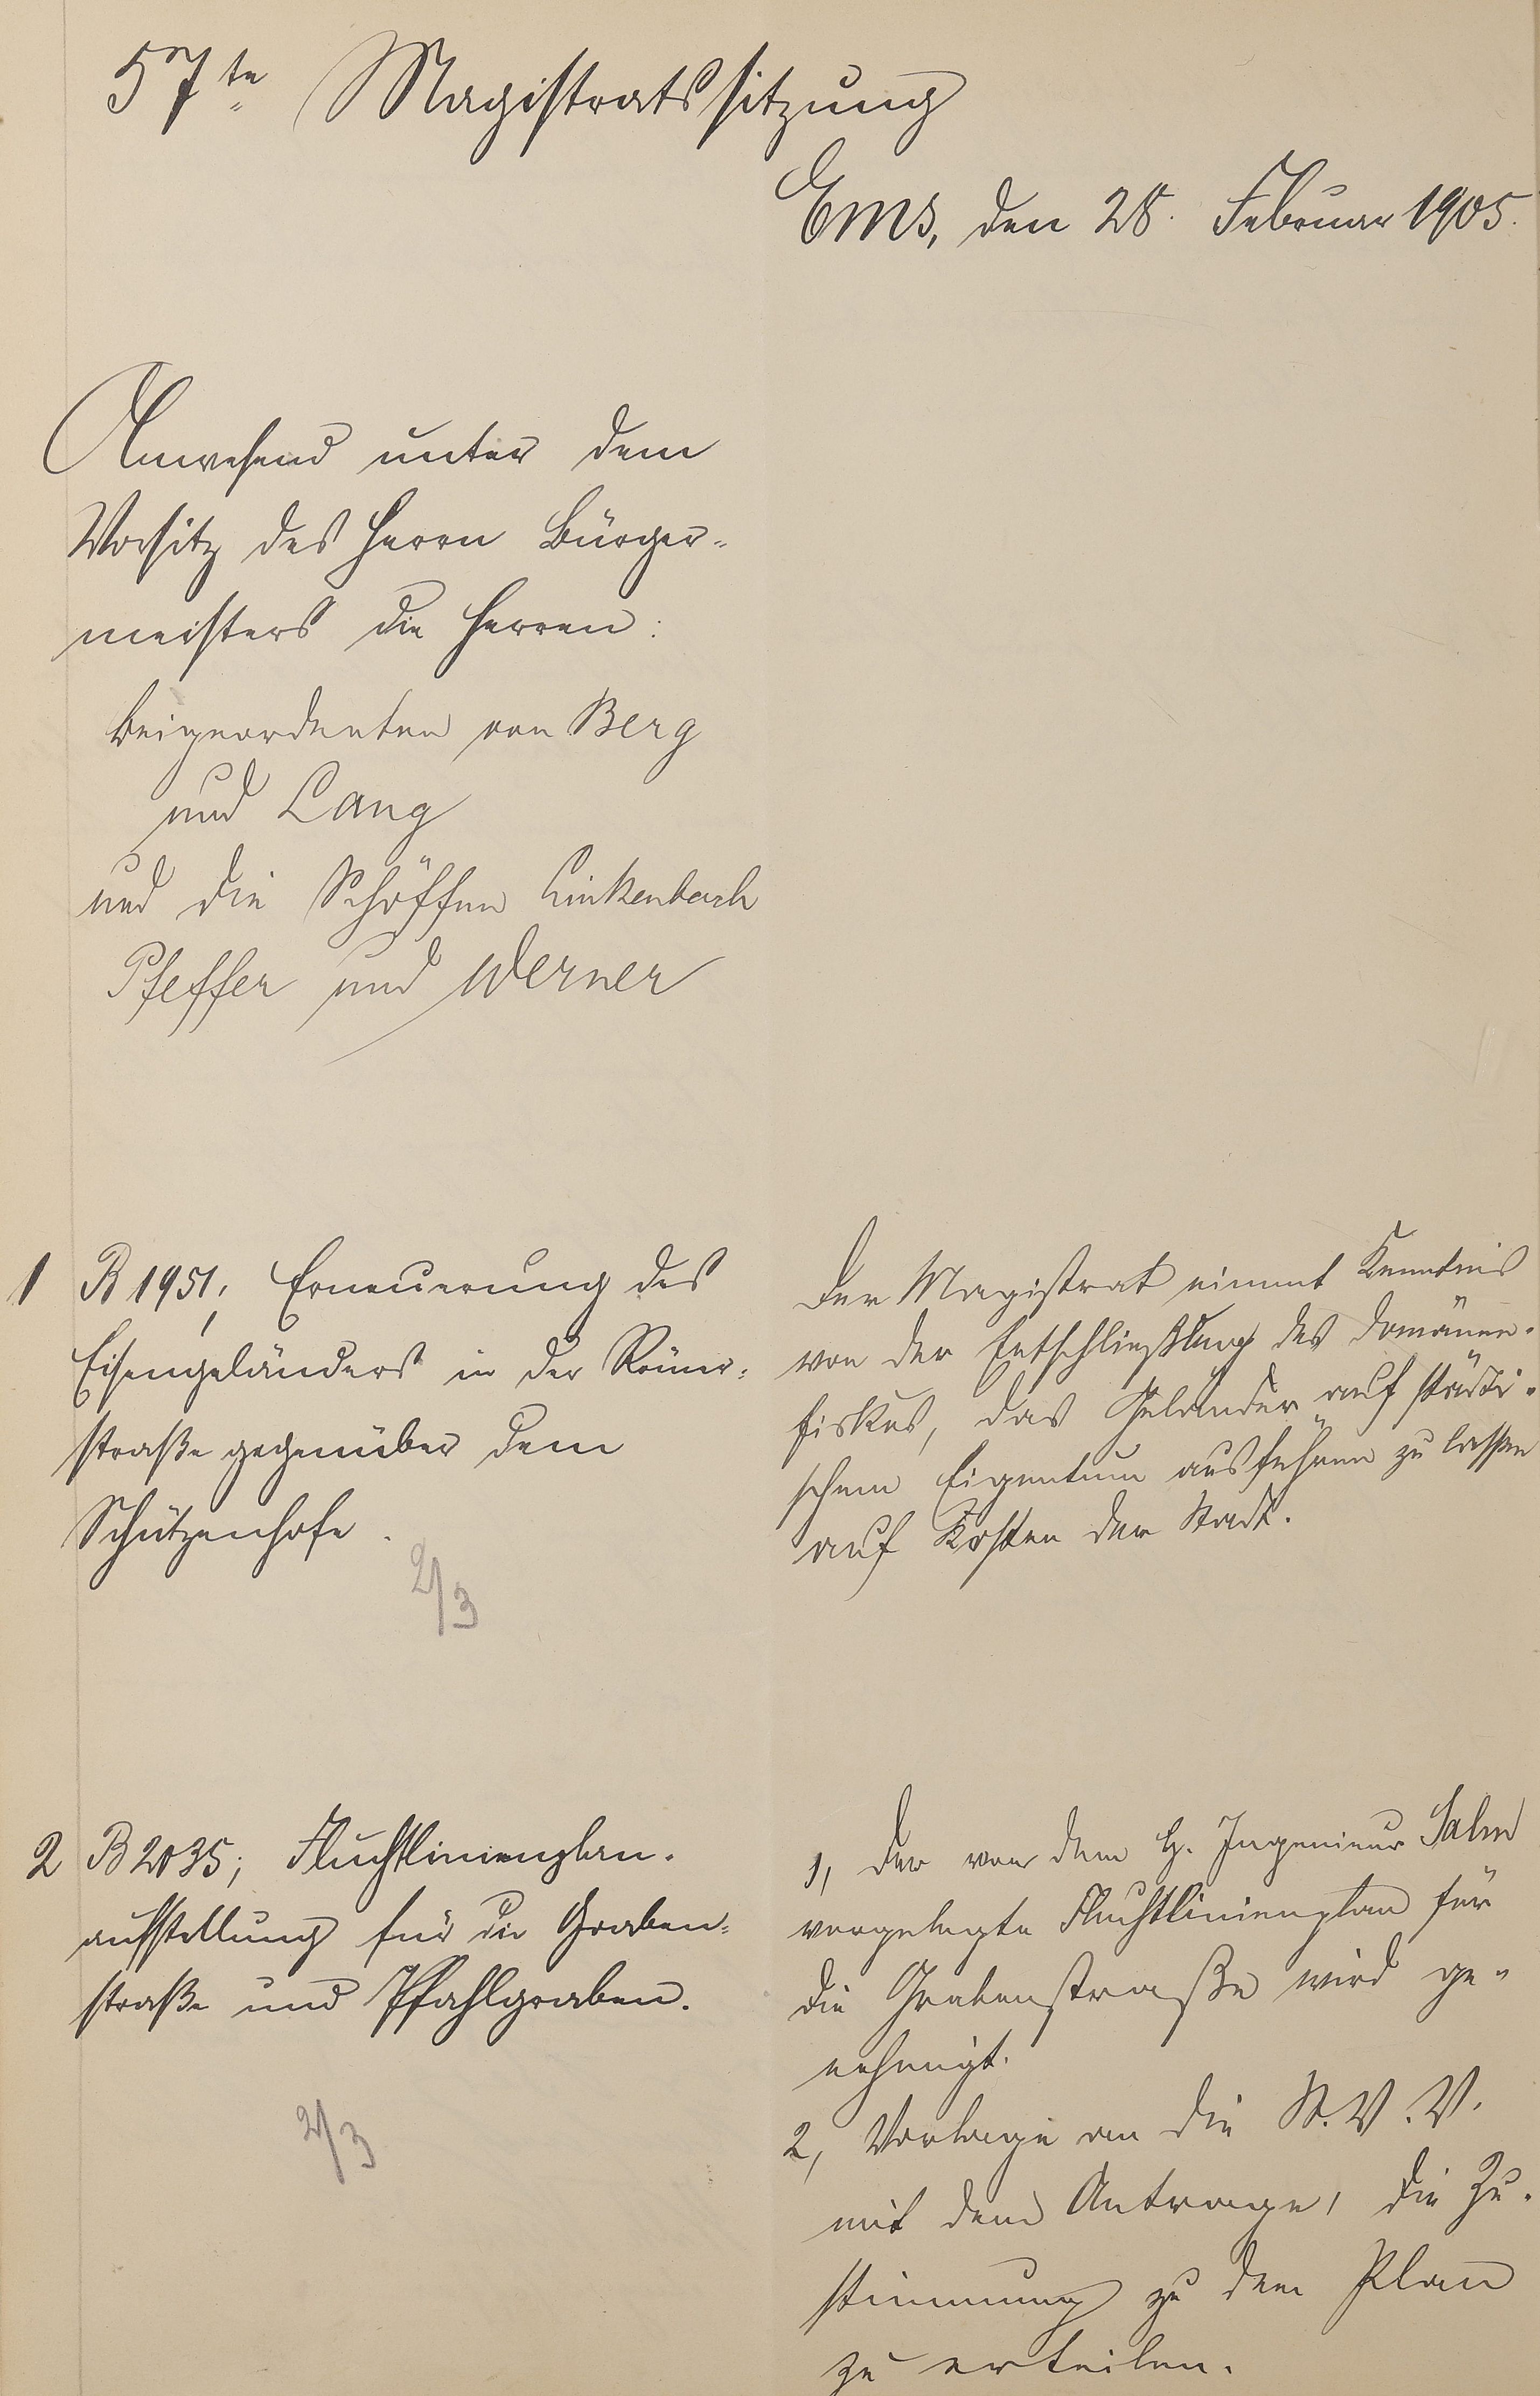 57te Magistratssitzung
Ems, den 28. Februar 1905.
Anwesend unter dem
Vorsitz des Herrn Bürger-
meisters die Herren:
Beigeordneten von Berg
und Lang
und die Schöffen Linkenbach
Pfeffer und Werner
1 B 1951; Erneuerung des
Eisengeländers in der Römer-
straße gegenüber dem
Schützenhofe.
2/3
Der Magistrat nimmt Kenntnis
von der Entschließung des Domänen-
fiskus, das Geländer auf städti-
schem Eigentum ausführen zu lassen
auf Kosten der Stadt.
2 B 2035; Fluchtlinienplan-
aufstellung für die Graben-
straße und Pfahlgraben.
2/3
1, Der von dem H. Ingenieur Salm
vorgelegte Fluchtlinienplan für
die Grabenstraße wird ge-
nehmigt.
2, Vorlage an die St.V.V.
mit dem Antrage, die Zu-
stimmung zu dem Plan
zu erteilen.